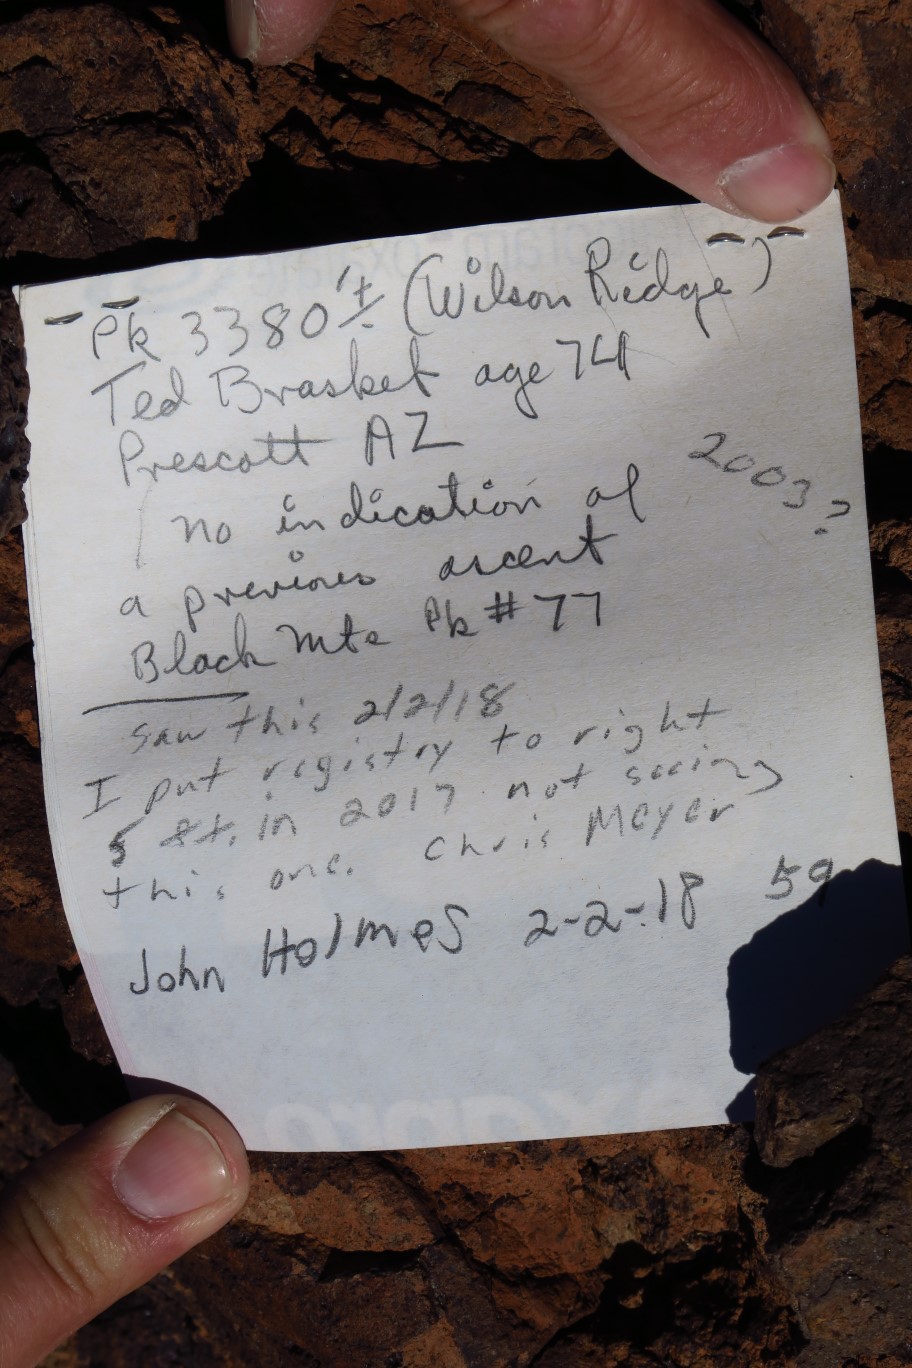 Pk 3380'± (Wilson Ridge)
Ted Brasket age 74
Prescott AZ
2003?
no indication of
a previous ascent
Black Mts Pk #77
saw this 2/2/18
I put registry to right
5 ft. in 2017 not seeing
this one. Chris Meyer
John Holmes 2-2-18 59